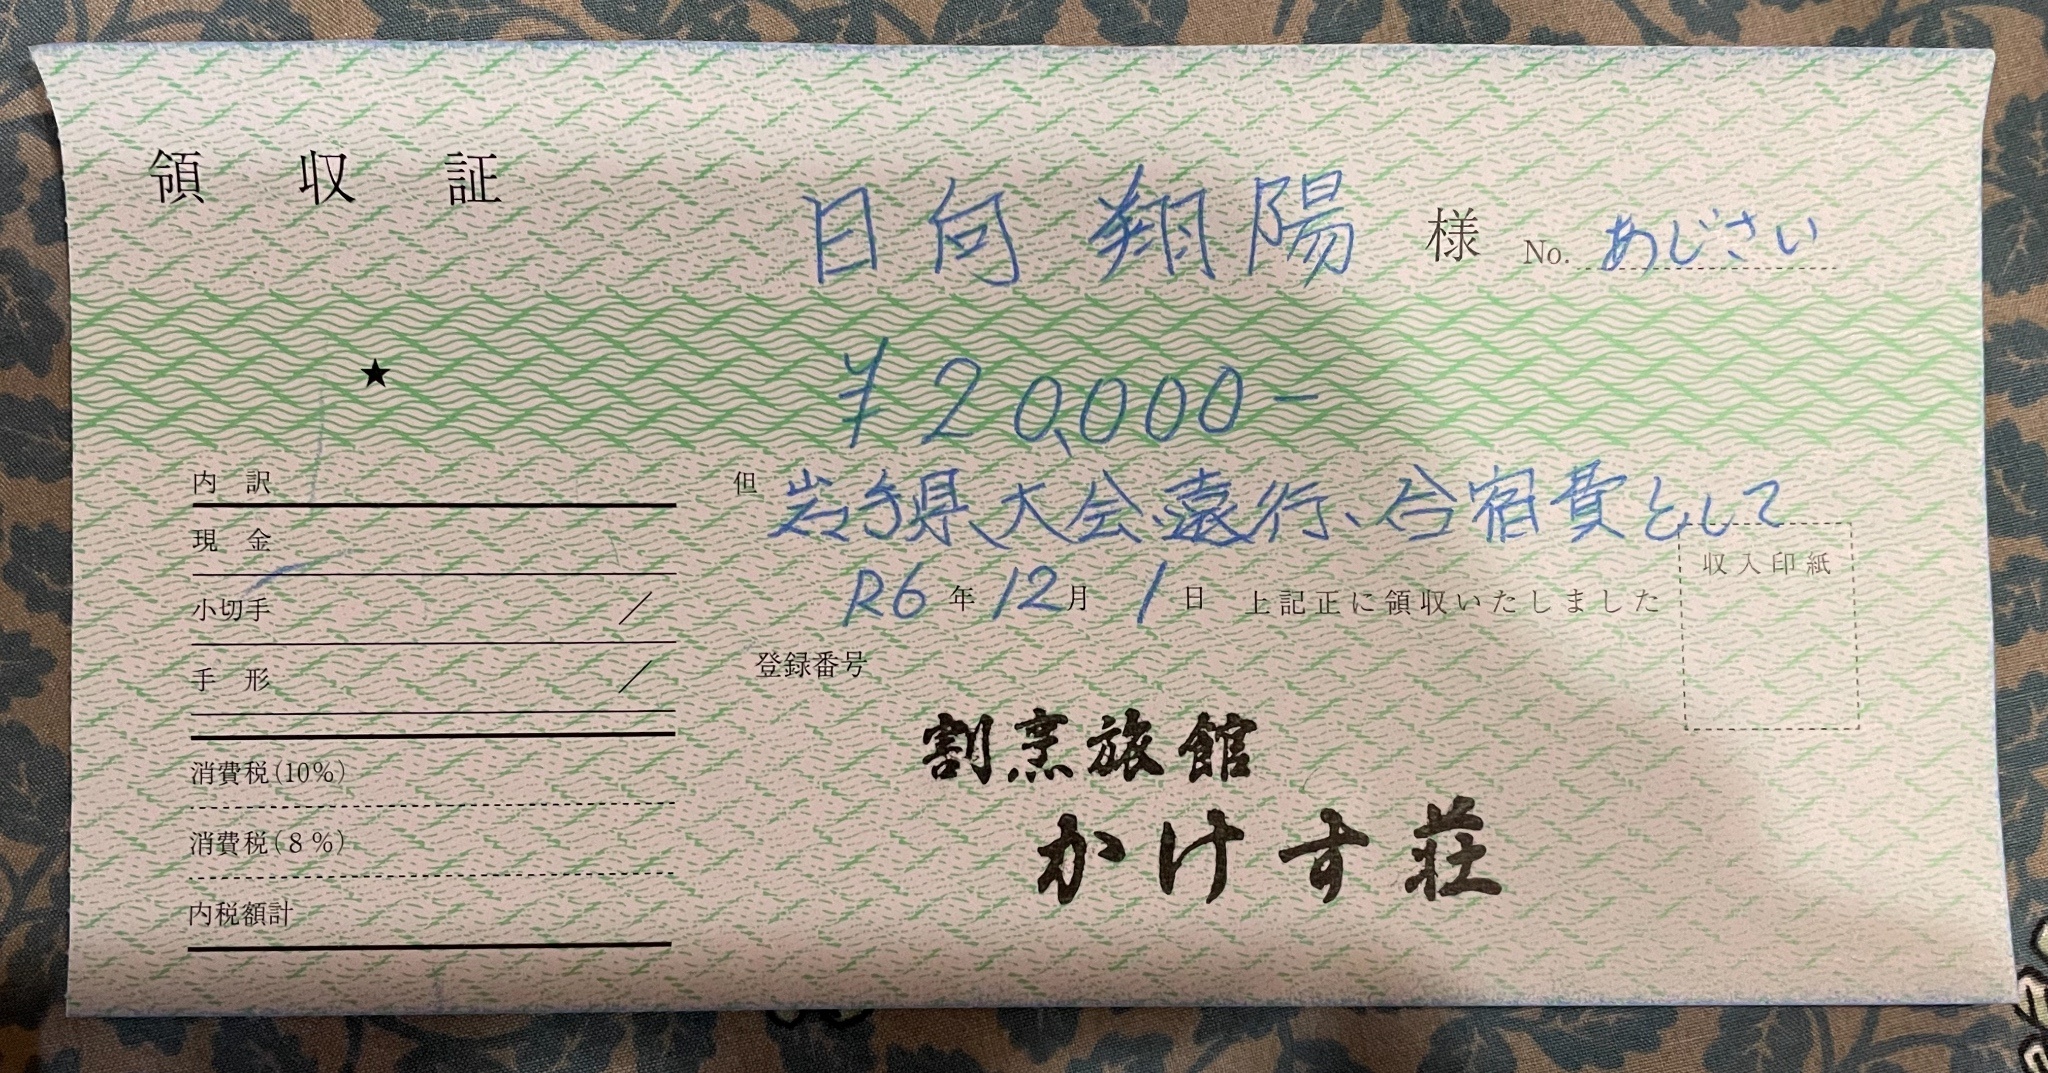 領 収 証
日向 翔陽 様 No. あじさい
★ ¥20,000-
内 訳
現 金
小切手 /
手 形 /
消費税(10%)
消費税(8%)
内税額計
但 岩手県大会遠行、合宿費として
収入印紙
R6年12月1日 上記正に領収いたしました
登録番号
割烹旅館
かけす荘